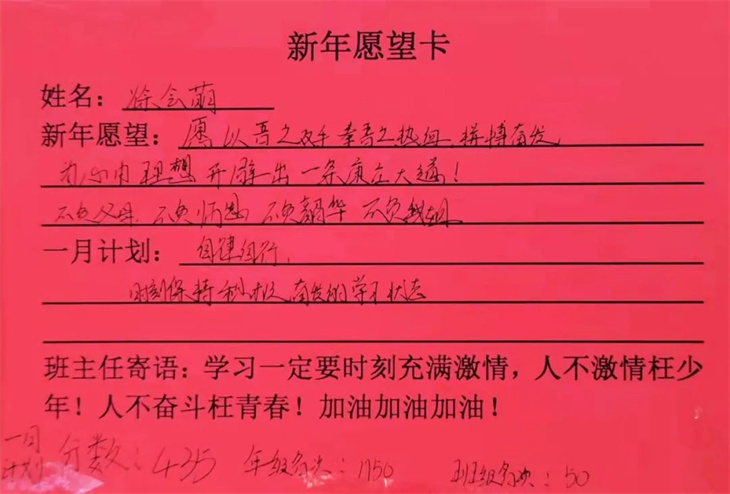 新年愿望卡
姓名：徐会萌
新年愿望：愿以吾之双手 幸吾之热血 拼搏奋发
为心中理想开辟出一条康庄大道！
不负父母 不负师恩 不负韶华 不负
一月计划：自律自行，
时刻保持积极奋发的学习状态
班主任寄语：学习一定要时刻充满激情，人不激情枉少
年！人不奋斗枉青春！加油加油加油！
一月
计划 分数：435 年级名次：1150 班级名次：50